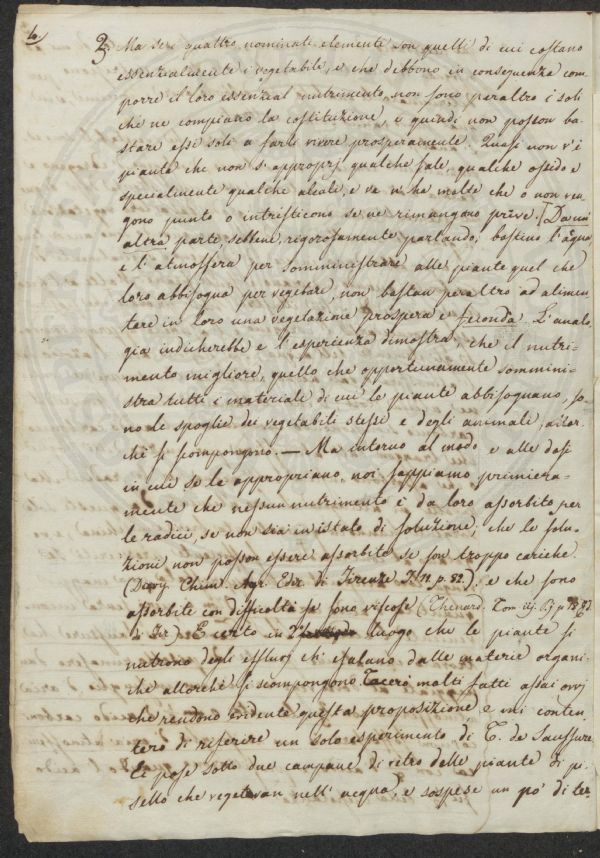 4)
2. Ma se i quattro nominati elementi son quelli di cui costano
essenzialmente i vegetabili, e che debbono in conseguenza com
porre il loro essenzial nutrimento, non sono peraltro i soli
che ne compiano la costituzione, e quindi non posson ba-
stare essi soli a farli vivere prosperamente. Quasi non v'è
pianta che non s'approprj qualche sale, qualche ossido e
specialmente qualche alcale, e ve n'ha molte che o non ven
gono punto o intristiscono se ne rimangano prive. [Da un'
altra parte, sebbene, rigorosamente parlando, bastino l'acqua
e l'atmosfera per somministrare alle piante quel che
loro abbisogna per vegetare, non bastan peraltro ad alimen
tare in loro una vegetazione prospera e feconda. L'analo
gia indicherebbe e l'esperienza dimostra, che il nutri-
mento migliore, quello che opportunamente sommini-
stra tutti i materiali di cui le piante abbisognano, so-
no le spoglie dei vegetabili stessi e degli animali, allor
chè si scompongono. — Ma intorno al modo e alle dosi
in cui se le appropriano, noi sappiamo primiera-
mente che nessun nutrimento è da loro assorbito per
le radici, se non sia in istato di soluzione; che le solu-
zioni non posson essere assorbite se son troppo cariche.
(Davy. Chim. Agr. Ediz. di Firenze p. 52.); e che sono
assorbite con difficoltà se sono viscose (Thenard. Tom. iij.
di Fir.) È certo in 2° luogo che le piante si
nutrono degli effluvj ch'esalano dalle materie organi-
che allorchè si scompongono. Tacerò molti fatti assai ovvj
che rendono evidente questa proposizione e mi conten-
terò di riferire un solo esperimento di T. de Saussure.
Ei pose sotto due campane di vetro delle piante di pi-
sello che vegetavan nell'acqua, e sospese un po' di ter-